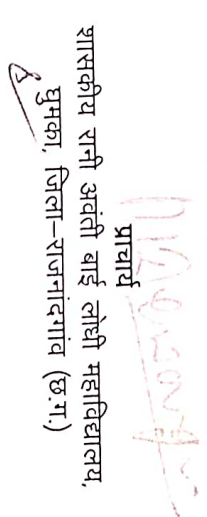 प्राचार्य
शासकीय रानी अवंती बाई लोधी महाविद्यालय,
घुमका, जिला-राजनांदगांव (छ.ग.)